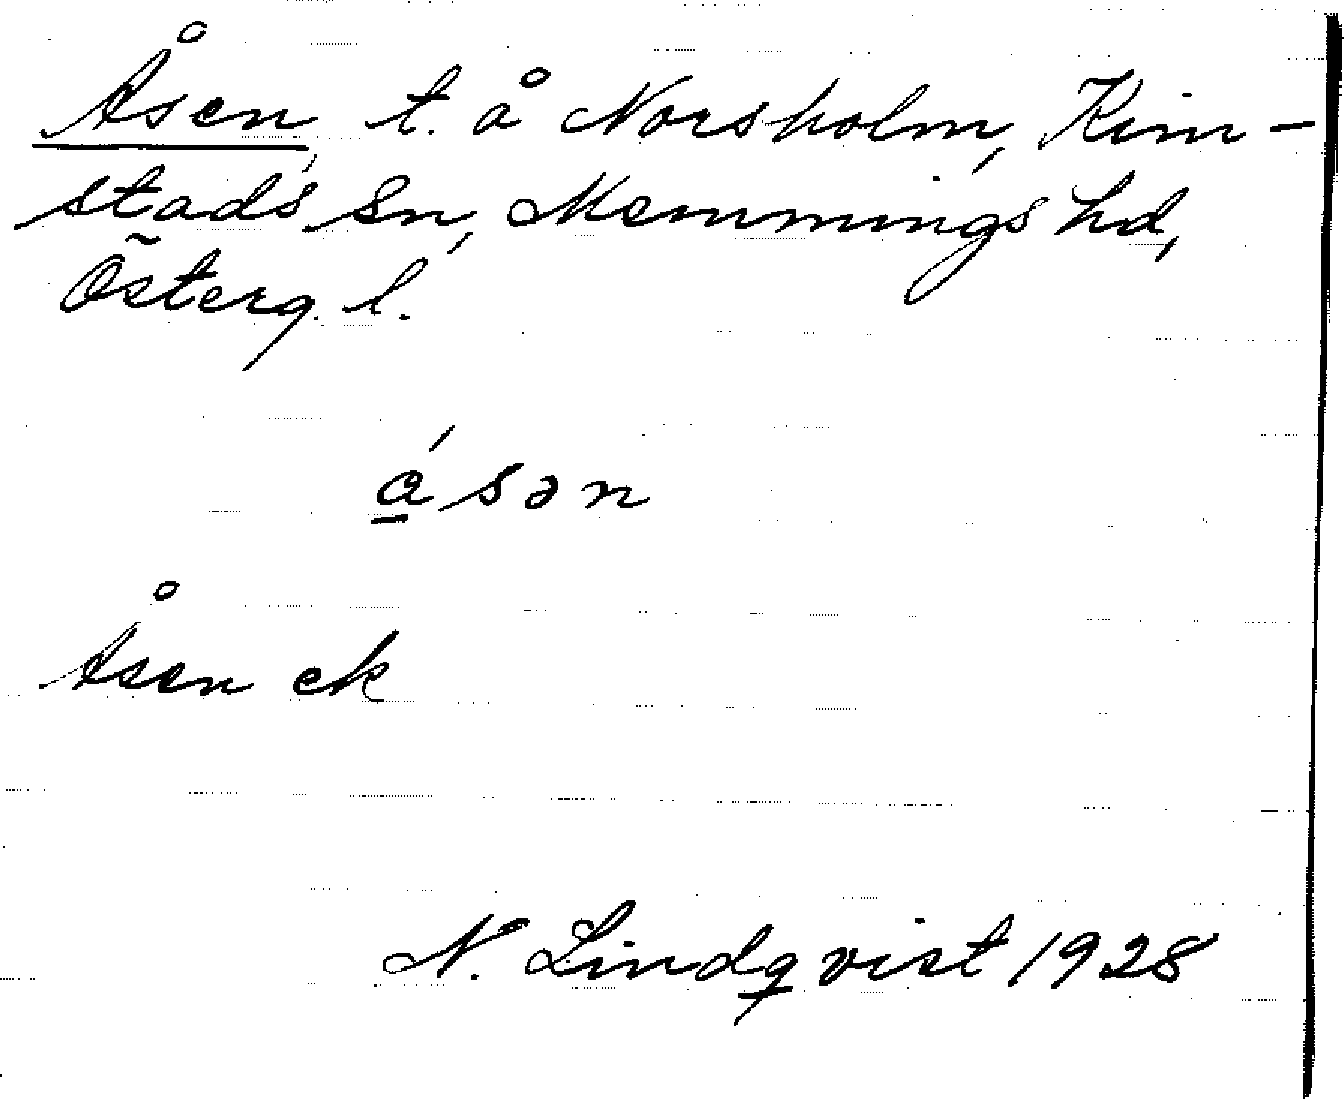 Åsen, t. å Norsholm, Kim-
stads sn, Memmings hd,
Österg. l.
á̲sən
Åsen ek
N. Lindqvist 1928